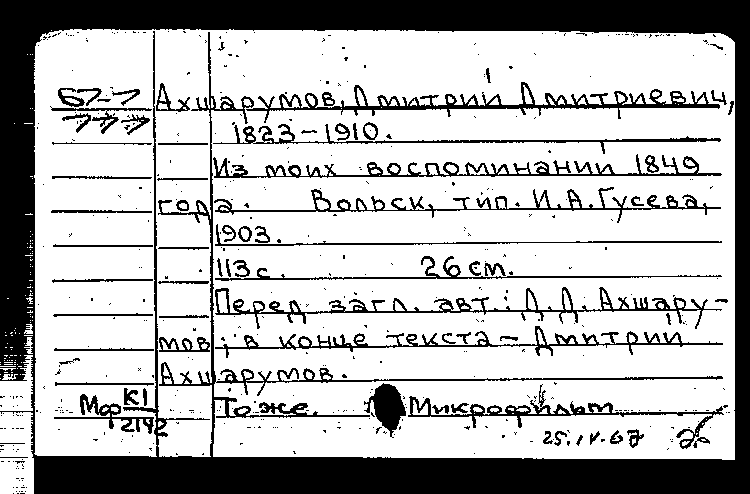 67-7 Ахшарумов, Дмитрий Дмитриевич,
777 1823-1910.
Из моих воспоминаний 1849
года. Вольск, тип. И.А.Гусева,
1903.
113 с. 26 см.
Перед загл. авт.: Д.Д. Ахшару-
мов; в конце текста - Дмитрий
Ахшарумов.
Мф К1/2142 То же. Микрофильм
25.IV.67